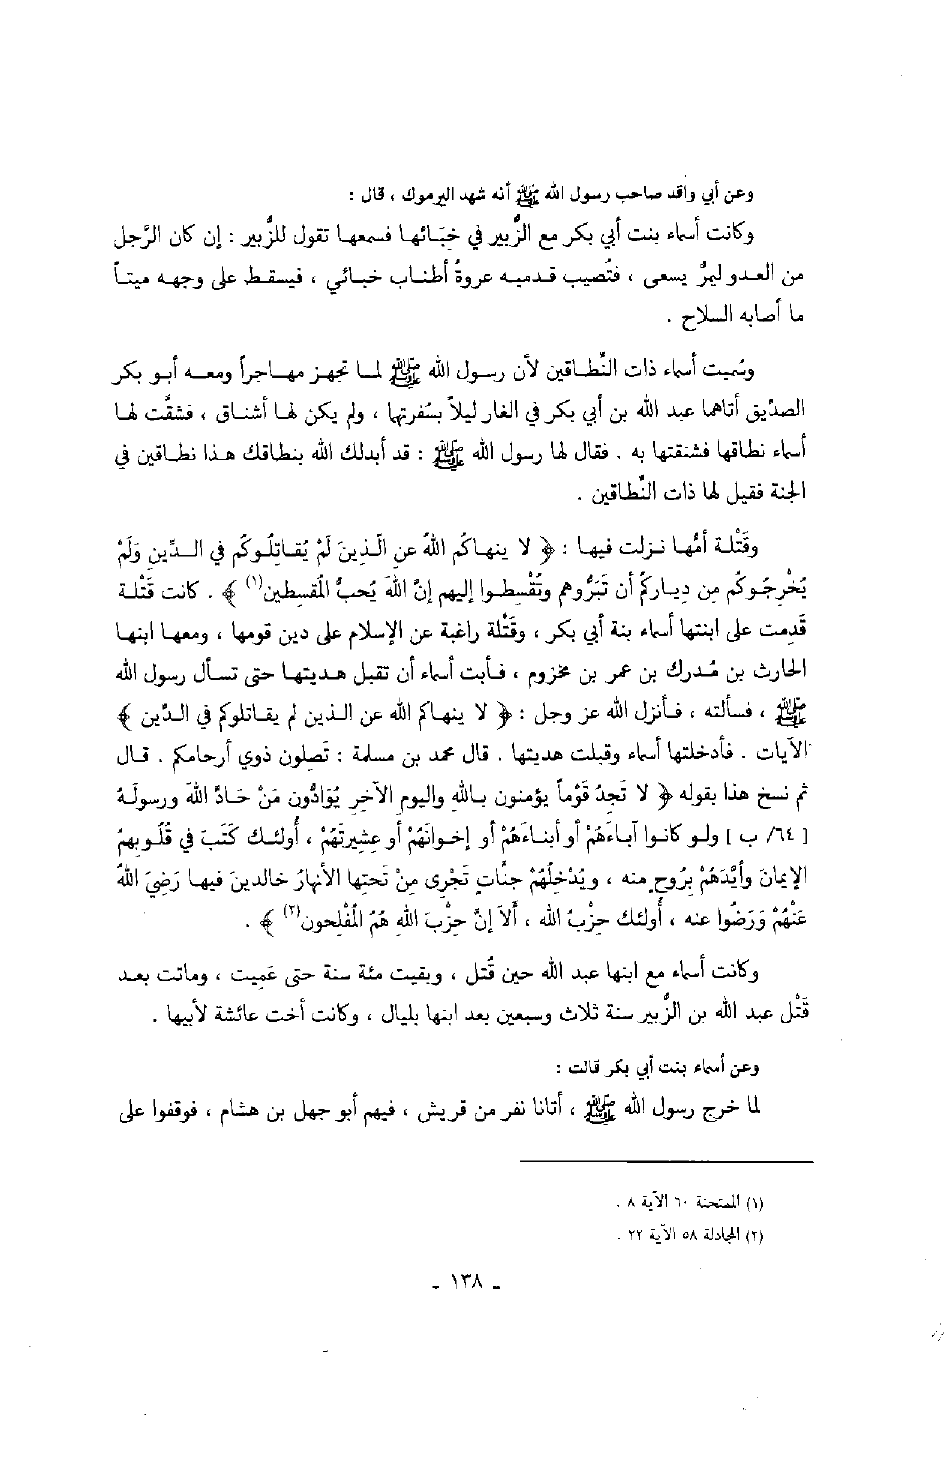 وعن أبي واقد صاحب رسول الله ﷺ أنه شهد اليرموك ، قال :
وكانت أسماء بنت أبي بكر مع الزُّبير في خِبَائها فسمعها تقول للزُّبير : إن كان الرَّجل
من العدو ليمرُّ يسعى ، فتُصيب قدميه عروةُ أطناب خبائي ، فيسقط على وجهه ميتاً
ما أصابه السلاح .
وسُميت أسماء ذات النِّطاقين لأن رسول الله ﷺ لما تجهز مهاجراً ومعه أبو بكر
الصدِّيق أتاهما عبد الله بن أبي بكر في الغار ليلاً بسُفرتها ، ولم يكن لها أشناق ، فشقَّت لها
أسماء نطاقها فشنقتها به . فقال لها رسول الله ﷺ : قد أبدلك الله بنطاقك هذا نطاقين في
الجنة فقيل لها ذات النِّطاقين .
وقَتْلة أمُّها نزلت فيها : ﴿ لا ينهاكُم اللهُ عن الَّذينَ لَمْ يُقاتِلُوكُم في الدِّينِ وَلَمْ
يُخْرِجُوكُم مِن دِيارِكُم أن تَبَرُّوهم وتُقْسِطوا إليهم إنَّ اللهَ يُحبُّ المُقسِطين(١) ﴾ . كانت قَتْلة
قَدِمت على ابنتها أسماء بنة أبي بكر ، وقَتْلة راغبة عن الإسلام على دين قومها ، ومعها ابنها
الحارث بن مُدرك بن عمر بن مخزوم ، فأبت أسماء أن تقبل هديتها حتى تسأل رسول الله
ﷺ ، فسألته ، فأنزل الله عز وجل : ﴿ لا ينهاكم الله عن الذين لم يقاتلوكم في الدِّين ﴾
الآيات . فأدخلتها أسماء وقبلت هديتها . قال محمد بن مسلمة : تَصِلون ذوي أرحامكم . قال
ثم نسخ هذا بقوله ﴿ لا تَجِدُ قَوْماً يؤمنون باللهِ واليوم الآخرِ يُوَادُّون مَنْ حَادَّ اللهَ ورسولَهُ
[ ٦٤/ ب ] ولو كانوا آباءَهُمْ أو أبناءَهُمْ أو إخوانَهُمْ أو عشيرتَهُمْ ، أُولئكَ كَتَبَ في قُلُوبِهِمُ
الإيمَانَ وأيَّدَهُمْ بِرُوحٍ منه ، ويُدْخِلُهُمْ جنَّاتٍ تَجْرِى مِنْ تَحتِها الأنهارُ خالدينَ فيها رَضِيَ اللهُ
عَنْهُمْ وَرَضُوا عنه ، أُولئك حِزْبُ الله ، أَلاَ إنَّ حِزْبَ اللهِ هُمُ المُفْلِحون(٢) ﴾ .
وكانت أسماء مع ابنها عبد الله حين قُتل ، وبقيت مئة سنة حتى عَمِيت ، وماتت بعد
قَتْل عبد الله بن الزُّبير سنة ثلاث وسبعين بعد ابنها بليال ، وكانت أخت عائشة لأبيها .
وعن أسماء بنت أبي بكر قالت :
لما خرج رسول الله ﷺ ، أتانا نفر من قريش ، فيهم أبو جهل بن هشام ، فوقفوا على
(١) الممتحنة ٦٠ الآية ٨ .
(٢) المجادلة ٥٨ الآية ٢٢ .
ـ ١٣٨ ـ